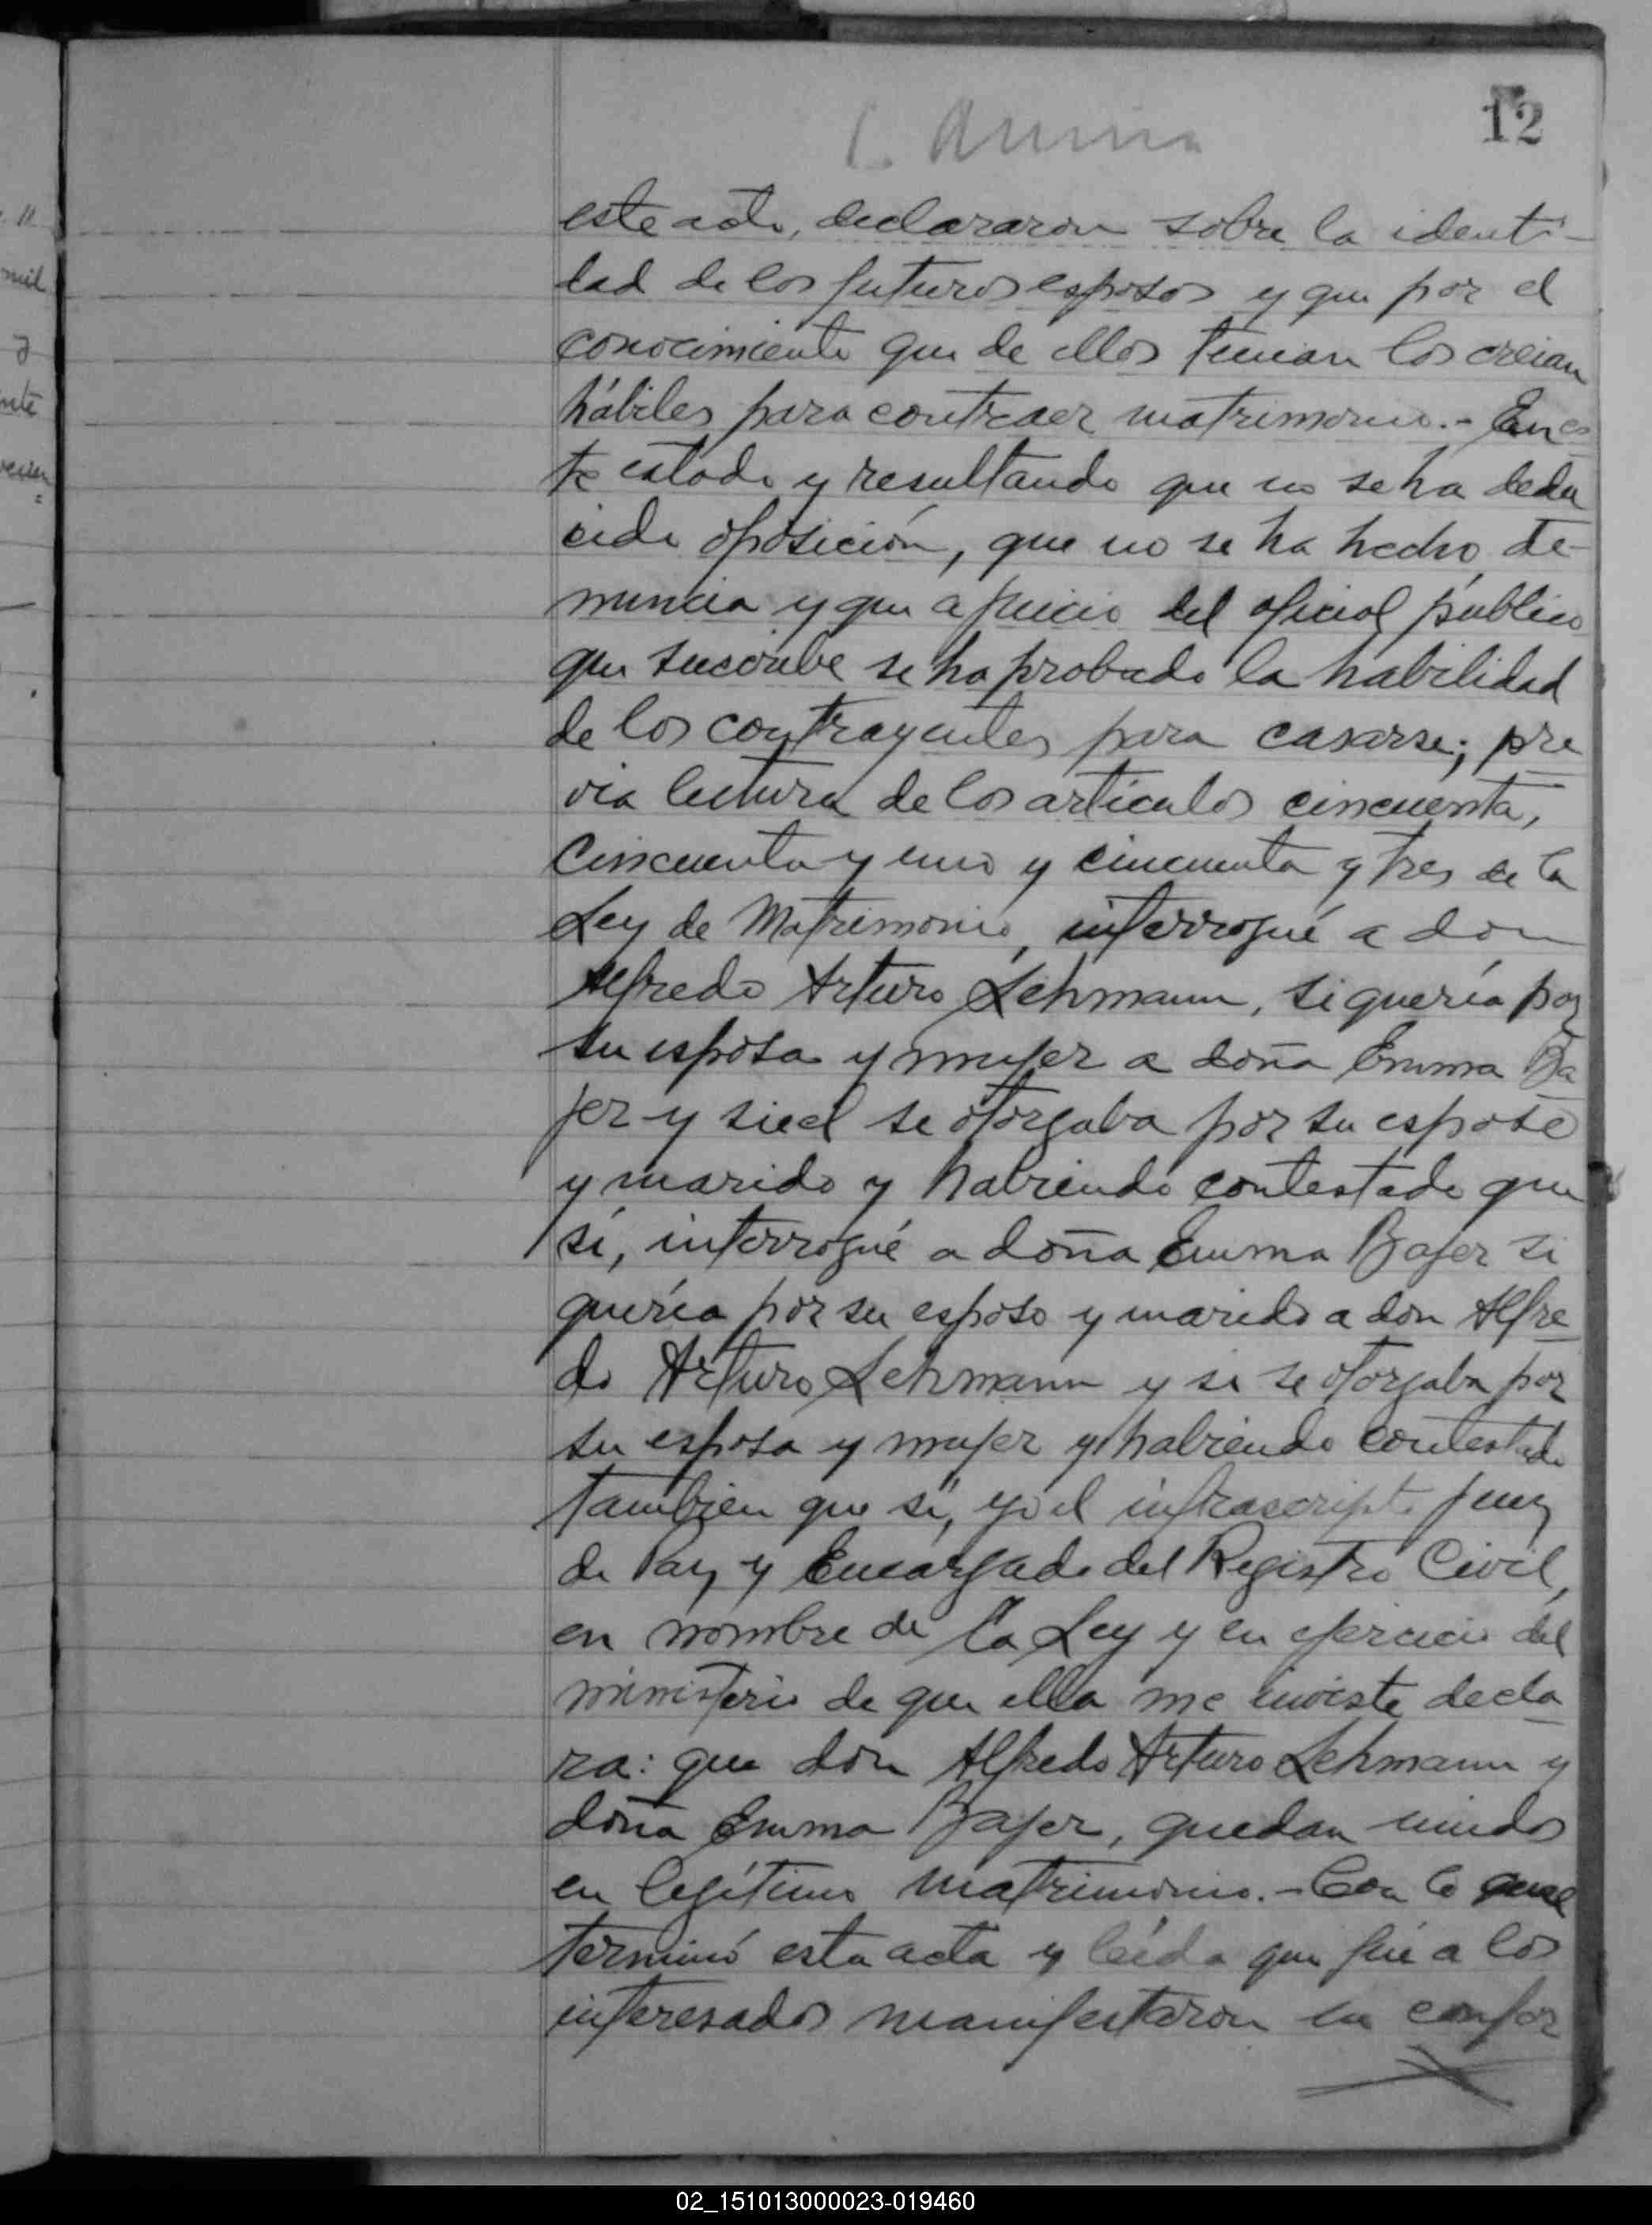 12
este acto, declararon sobre la identi-
dad de los futuros esposos y que por el
conocimiento que de ellos tenian los creian
hábiles para contraer matrimonio.- En es
te estado y resultando que no se ha dedu
cido oposición, que no se ha hecho de-
nuncia y que a juicio del oficial público
que suscribe se ha probado la habilidad
de los contrayentes para casarse; pre
via lectura de los artículos cincuenta,
cincuenta y uno y cincuenta y tres de la
Ley de Matrimonio, interrogué a don
Alfredo Arturo Lehmann, si quería por
su esposa y mujer a doña Emma Ba
jer y si el se otorgaba por su esposo
y marido y habiendo contestado que
sí, interrogué a doña Emma Bajer si
quería por su esposo y marido a don Alfre
do Arturo Lehmann y si se otorgaba por
su esposa y mujer y habiendo contestado
tambien que sí, yo el infrascripto Juez
de Paz y Encargado del Registro Civil,
en nombre de la Ley y en ejercicio del
ministerio de que ella me inviste decla
ra: que don Alfredo Arturo Lehmann y
doña Emma Bajer, quedan unidos
en legítimo matrimonio.- Con lo que
terminó esta acta y leída que fué a los
interesados manifestaron su confor
02_151013000023-019460